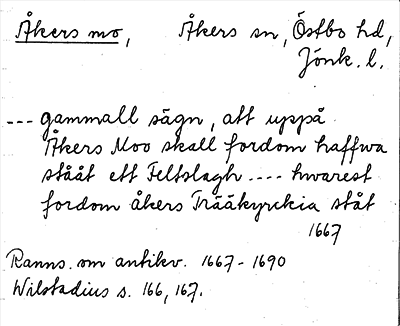 Åkers mo, Åkers sn, Östbo hd,
Jönk. l.
--- gammall sägn, att uppå
Åkers Moo skall fordom haffwa
stååt ett Feltslagh .... hwarest
fordom åkers Trääkyrckia ståt
1667
Ranns. om antikv. 1667-1690
Wilstadius s. 166, 167.